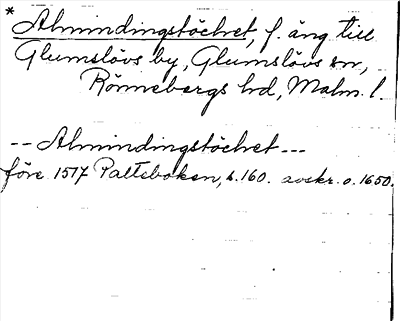 * Almindingstöchret, f. äng till
Glumslövs by, Glumslövs sn,
Rönnebergs hd, Malm. l.
-- Almindingstöchret ---
före 1517 Paltsboken, s. 160. avskr. o. 1650.